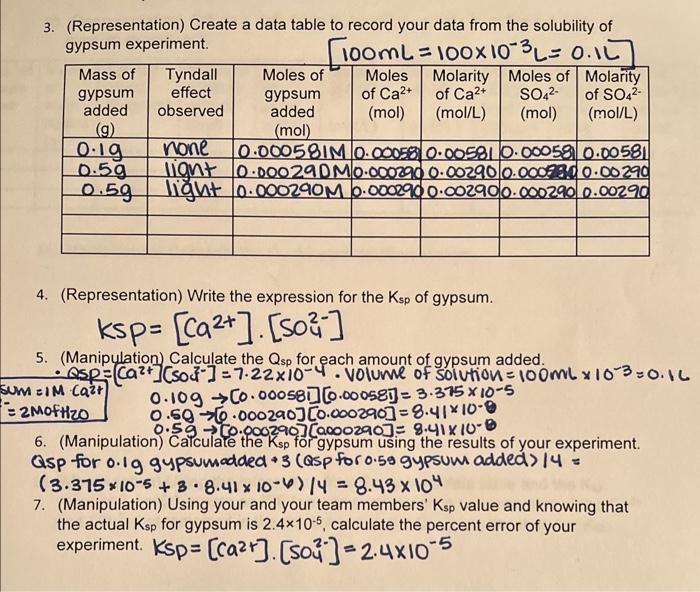 3. (Representation) Create a data table to record your data from the solubility of
gypsum experiment. [100mL = 100×10⁻³L = 0.1L]
Mass of gypsum added (g) | Tyndall effect observed | Moles of gypsum added (mol) | Moles of Ca²⁺ (mol) | Molarity of Ca²⁺ (mol/L) | Moles of SO₄²⁻ (mol) | Molarity of SO₄²⁻ (mol/L)
0.1g | none | 0.000581M | 0.000581 | 0.00581 | 0.000581 | 0.00581
0.5g | light | 0.000290M | 0.000290 | 0.00290 | 0.000290 | 0.00290
0.5g | light | 0.000290M | 0.000290 | 0.00290 | 0.000290 | 0.00290
4. (Representation) Write the expression for the Ksp of gypsum.
Ksp = [Ca²⁺]·[SO₄²⁻]
5. (Manipulation) Calculate the Qsp for each amount of gypsum added.
• Qsp=[Ca²⁺][SO₄²⁻] = 7.22×10⁻⁴ • Volume of solution = 100mL × 10⁻³ = 0.1L
SUM = 1M Ca2+
= 2M of H2O
0.10g → [0.000581][0.000581] = 3.375×10⁻⁵
0.5g → [0.000290][0.000290] = 8.41×10⁻⁸
0.5g → [0.000290][0.000290] = 8.41×10⁻⁸
6. (Manipulation) Calculate the Ksp for gypsum using the results of your experiment.
Qsp for 0.1g gypsum added + 3 (Qsp for 0.5g gypsum added) / 4 =
(3.375×10⁻⁵ + 3 · 8.41 × 10⁻⁶) / 4 = 8.43 × 10⁴
7. (Manipulation) Using your and your team members' Ksp value and knowing that
the actual Ksp for gypsum is 2.4×10⁻⁵, calculate the percent error of your
experiment. Ksp = [Ca²⁺]·[SO₄²⁻] = 2.4×10⁻⁵